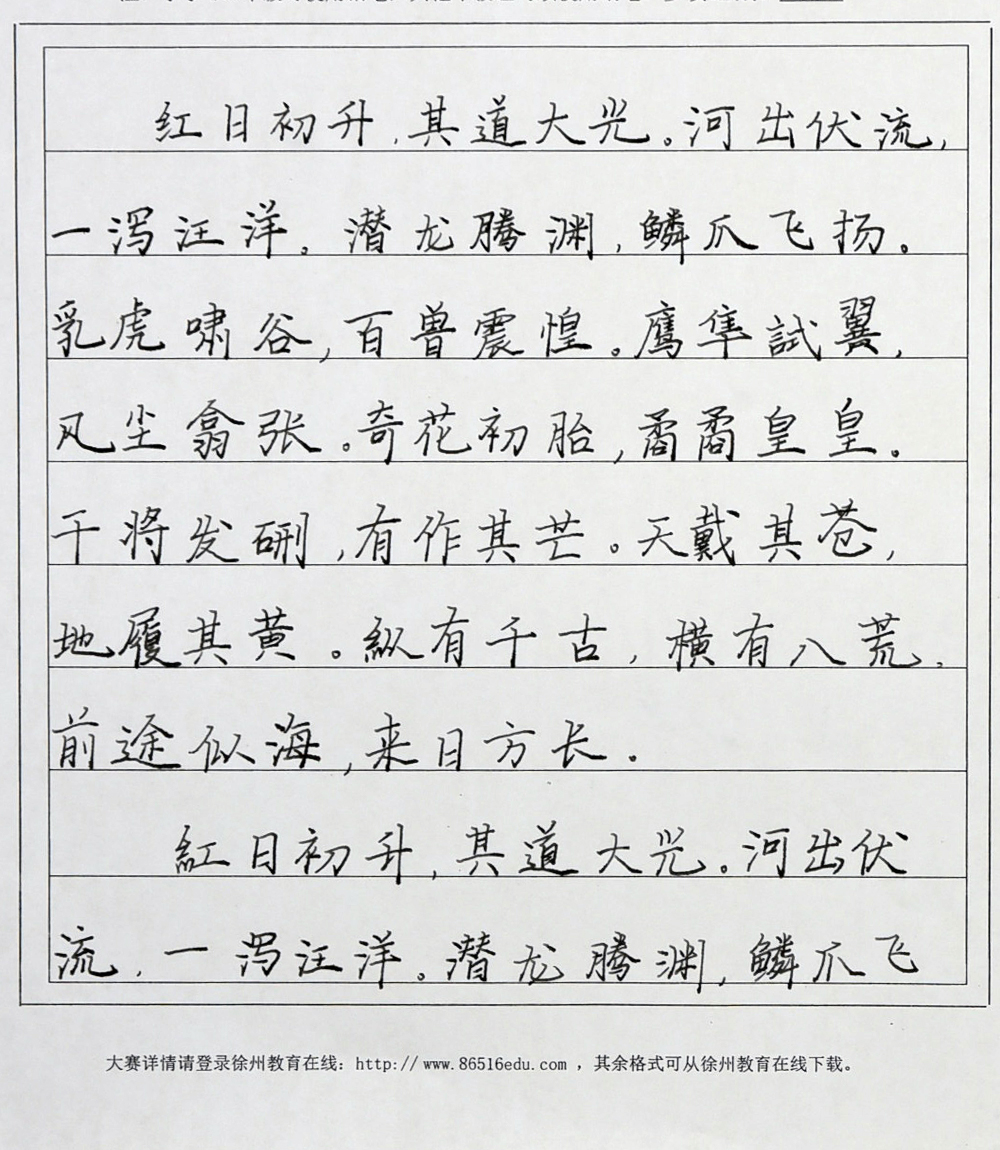 红日初升,其道大光。河出伏流,
一泻汪洋。潜龙腾渊,鳞爪飞扬。
乳虎啸谷,百兽震惶。鹰隼試翼,
风尘翕张。奇花初胎,矞矞皇皇。
干将发硎,有作其芒。天戴其苍,
地履其黄。纵有千古,横有八荒,
前途似海,来日方长.
紅日初升,其道大光。河出伏
流,一泻汪洋。潜龙腾渊,鳞爪飞
大赛详情请登录徐州教育在线:http://www.86516edu.com ,其余格式可从徐州教育在线下载。